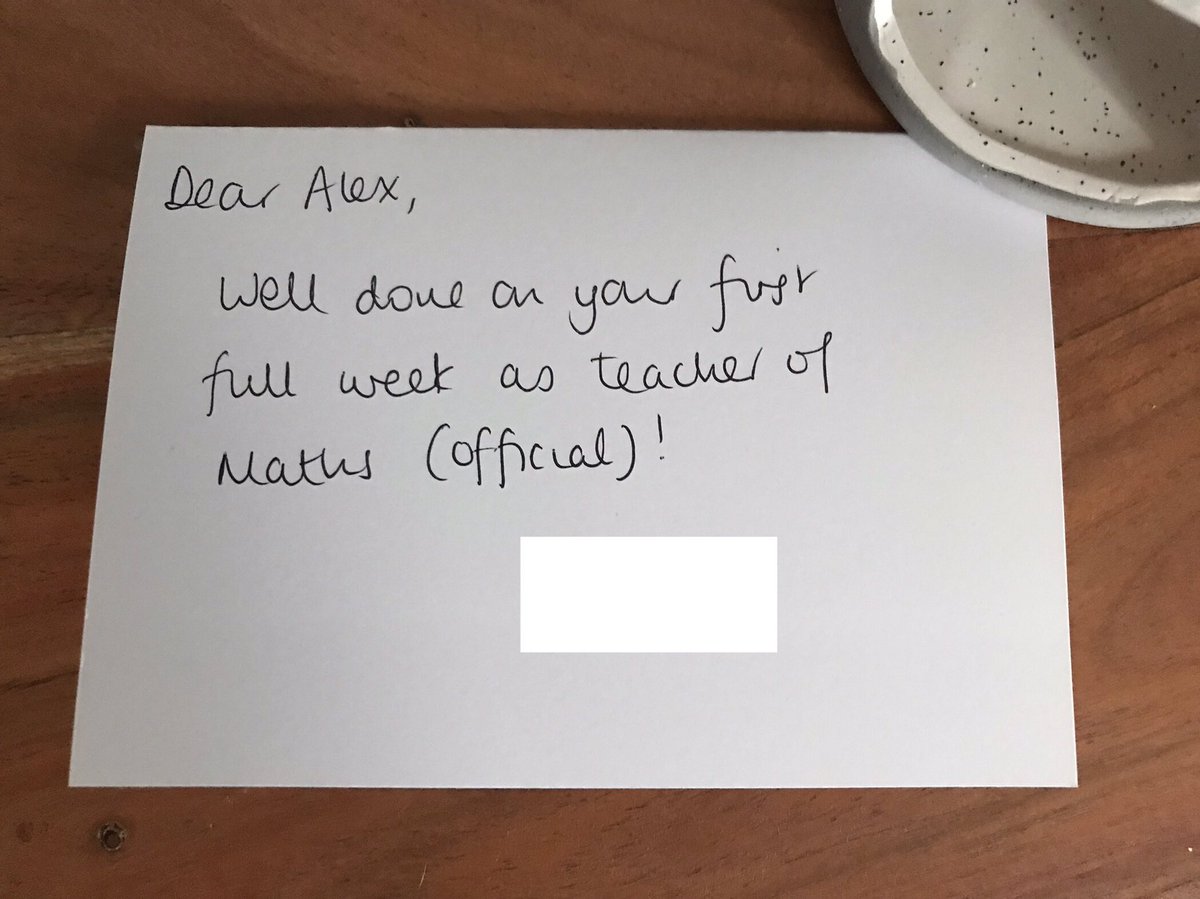 Dear Alex,
Well done on your first
full week as teacher of
Maths (official)!